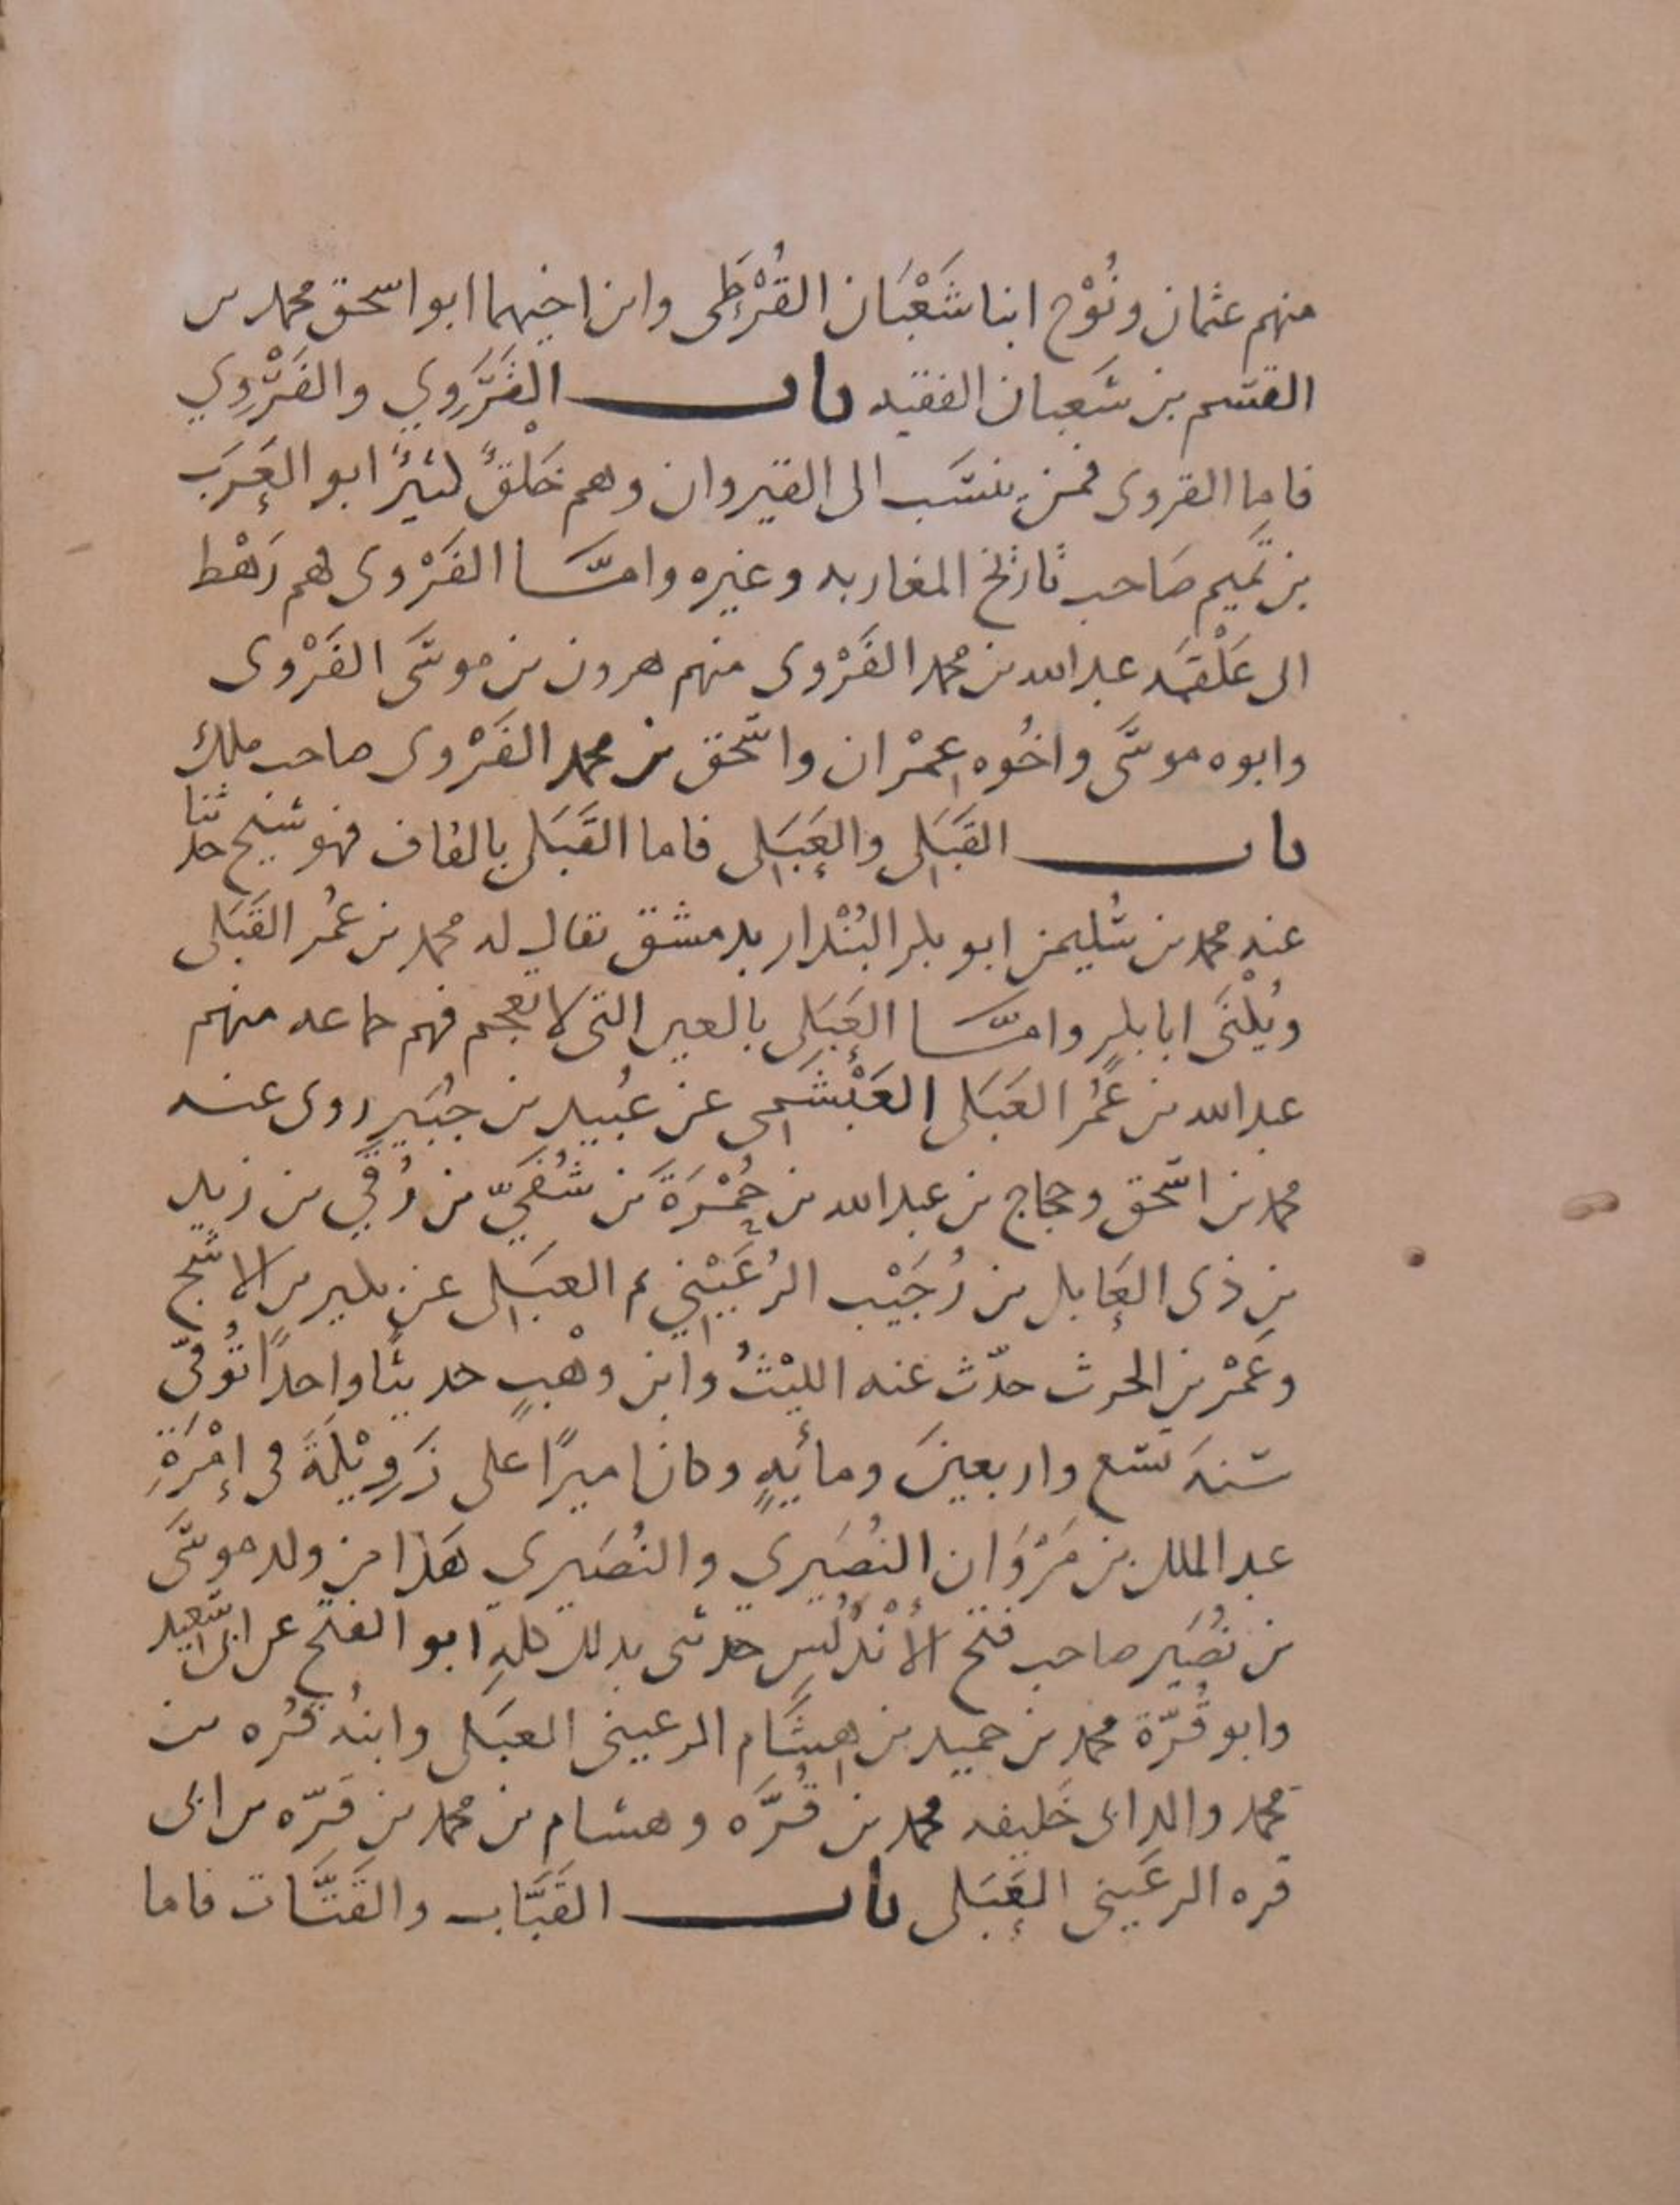 منهم عثمان ونُوْح ابنا شَعْبَان القُرْطِى وابن اخيهما ابو اسحق محمد بن
القسم بن شَعبان الفقيه باب القَرَوِي والفَرْوِي
فاما القروى فمن ينسَب الى القيروان وهم خَلْقٌ كثيرٌ ابو العَرَب
بن تَميم صَاحب تاريخ المغاربه وغيره وامّا الفَرْوى فهم رَهْط
الى عَلْقمَه عبدالله بن محمد الفَرْوى منهم هرون بن موسَى الفَرْوى
وابوه موسَى واخُوه عِمْران واسحق بن محمد الفَرْوى صاحب ملك
باب القَبَلِى والعَبَلِى فاما القَبَلى بالقاف فهو شيخ حدثنا
عنه محمد بن سُليمن ابو بكر البُنْدار بدمشق يقال له محمد بن عُمر القَبَلى
ويُكْنَى ابا بكرٍ وامّا العَبَلِى بالعين التى لا تعجم فهم جماعه منهم
عبدالله بن عُمَر العَبَلى العَبْشَمِى عن عُبيد بن جُبَيرٍ روى عنه
محمد بن اسحق وحجاج بن عبدالله بن حُمْرَةَ بن شُفَيّ بن رُقَيّ بن زيد
بن ذى العَابل بن رُجَيْب الرُعَيْنِي م العبَلِى عن بكير بن الاشج
وعَمْر بن الحرث حدّث عنه الليْثُ وابن وهْبٍ حديثًا واحدًا تُوُفيّ
سنهَ تسع واربعينَ ومأيهٍ وكان اميرًا على زَوِيْلَةَ فى إمْرَةِ
عبد الملك بن مَرْوَان النُصَيرِي والنُصَيرى هَذا من ولد موسَى
بن نُصَير صاحب فتح الأنْدَلُسِ حدثنى بذلك كلهِ ابو الفتح عن ابى سَعيد
وابو قُرّة محمد بن حميد بن هِشَام الرعينى العبَلى وابنهُ قُره بن
محمد والد ابى خَليفه محمد بن قُرَّه وهشام بن محمد بن قرّه بن ابى
قره الرعَينى العَبَلى باب القَبَّاب والقَتَّات فاما